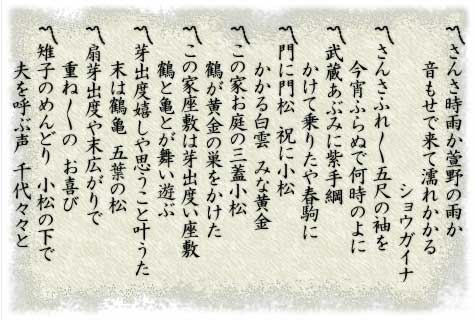 〽さんさ時雨か萱野の雨か
音もせで来て濡れかかる
ショウガイナ
〽さんさふれ〳〵五尺の袖を
今宵ふらぬで何時のよに
〽武蔵あぶみに紫手綱
かけて乗りたや春駒に
〽門に門松 祝に小松
かかる白雲 みな黄金
〽この家お庭の三蓋小松
鶴が黄金の巣をかけた
〽この家座敷は芽出度い座敷
鶴と亀とが舞い遊ぶ
〽芽出度嬉しや思うこと叶うた
末は鶴亀 五葉の松
〽扇芽出度や末広がりで
重ね〳〵の お喜び
〽雉子のめんどり 小松の下で
夫を呼ぶ声 千代々々と